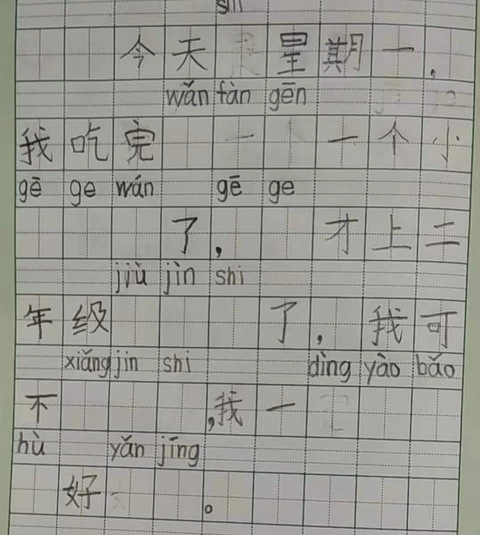 今天 星期一.
wǎn fàn gēn
我吃完 一个小
gē ge wán gē ge
了, 才上二
jiù jìn shi
年级 了, 我可
xiǎng jìn shi dìng yào bǎo
不 ,我一
hù yǎn jīng
好 。